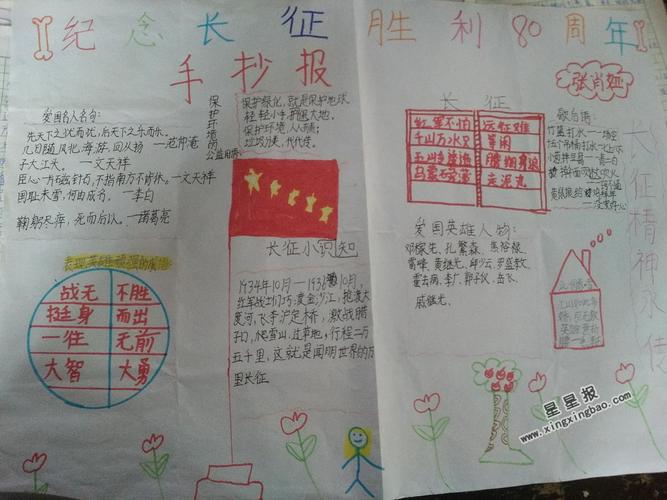 纪念长征胜利80周年
手抄报
张肖娅
爱国名人名句:
先天下之忧而忧,后天下之乐而乐。
几日随风北海游,回从扬
子大江头。 —文天祥
臣心一片磁针石,不指南方不肯休。—文天祥
国耻未雪,何由成名。 —李白
鞠躬尽瘁,死而后以。—诸葛亮
保护环境的
公益用语:
保护绿化,就是保护地球
保护环境,人人有责;
垃圾分类,代代传。
长征
红军不怕 远征难
千山万水只 等闲
五岭
腾细浪
乌蒙磅礴 走泥丸
歇后语:
竹篮打水—一场空
长征精神永传
爱国英雄人物:
邓稼先、孔繁森、焦裕禄、
雷峰、黄继光、邱少云、罗盛教、
霍去病、李广、郭子仪、岳飞、
戚继光、
长征小识知
1934年10月—1936年10月,
红军战士们巧渡金沙江,抢渡大
渡河,飞夺泸定桥,激战腊
子口,爬雪山,过草地,行程二万
五千里,这就是闻明世界的万
里长征
战无 不胜
挺身 而出
一往 无前
大智 大勇
星星报
www.xingxingbao.com